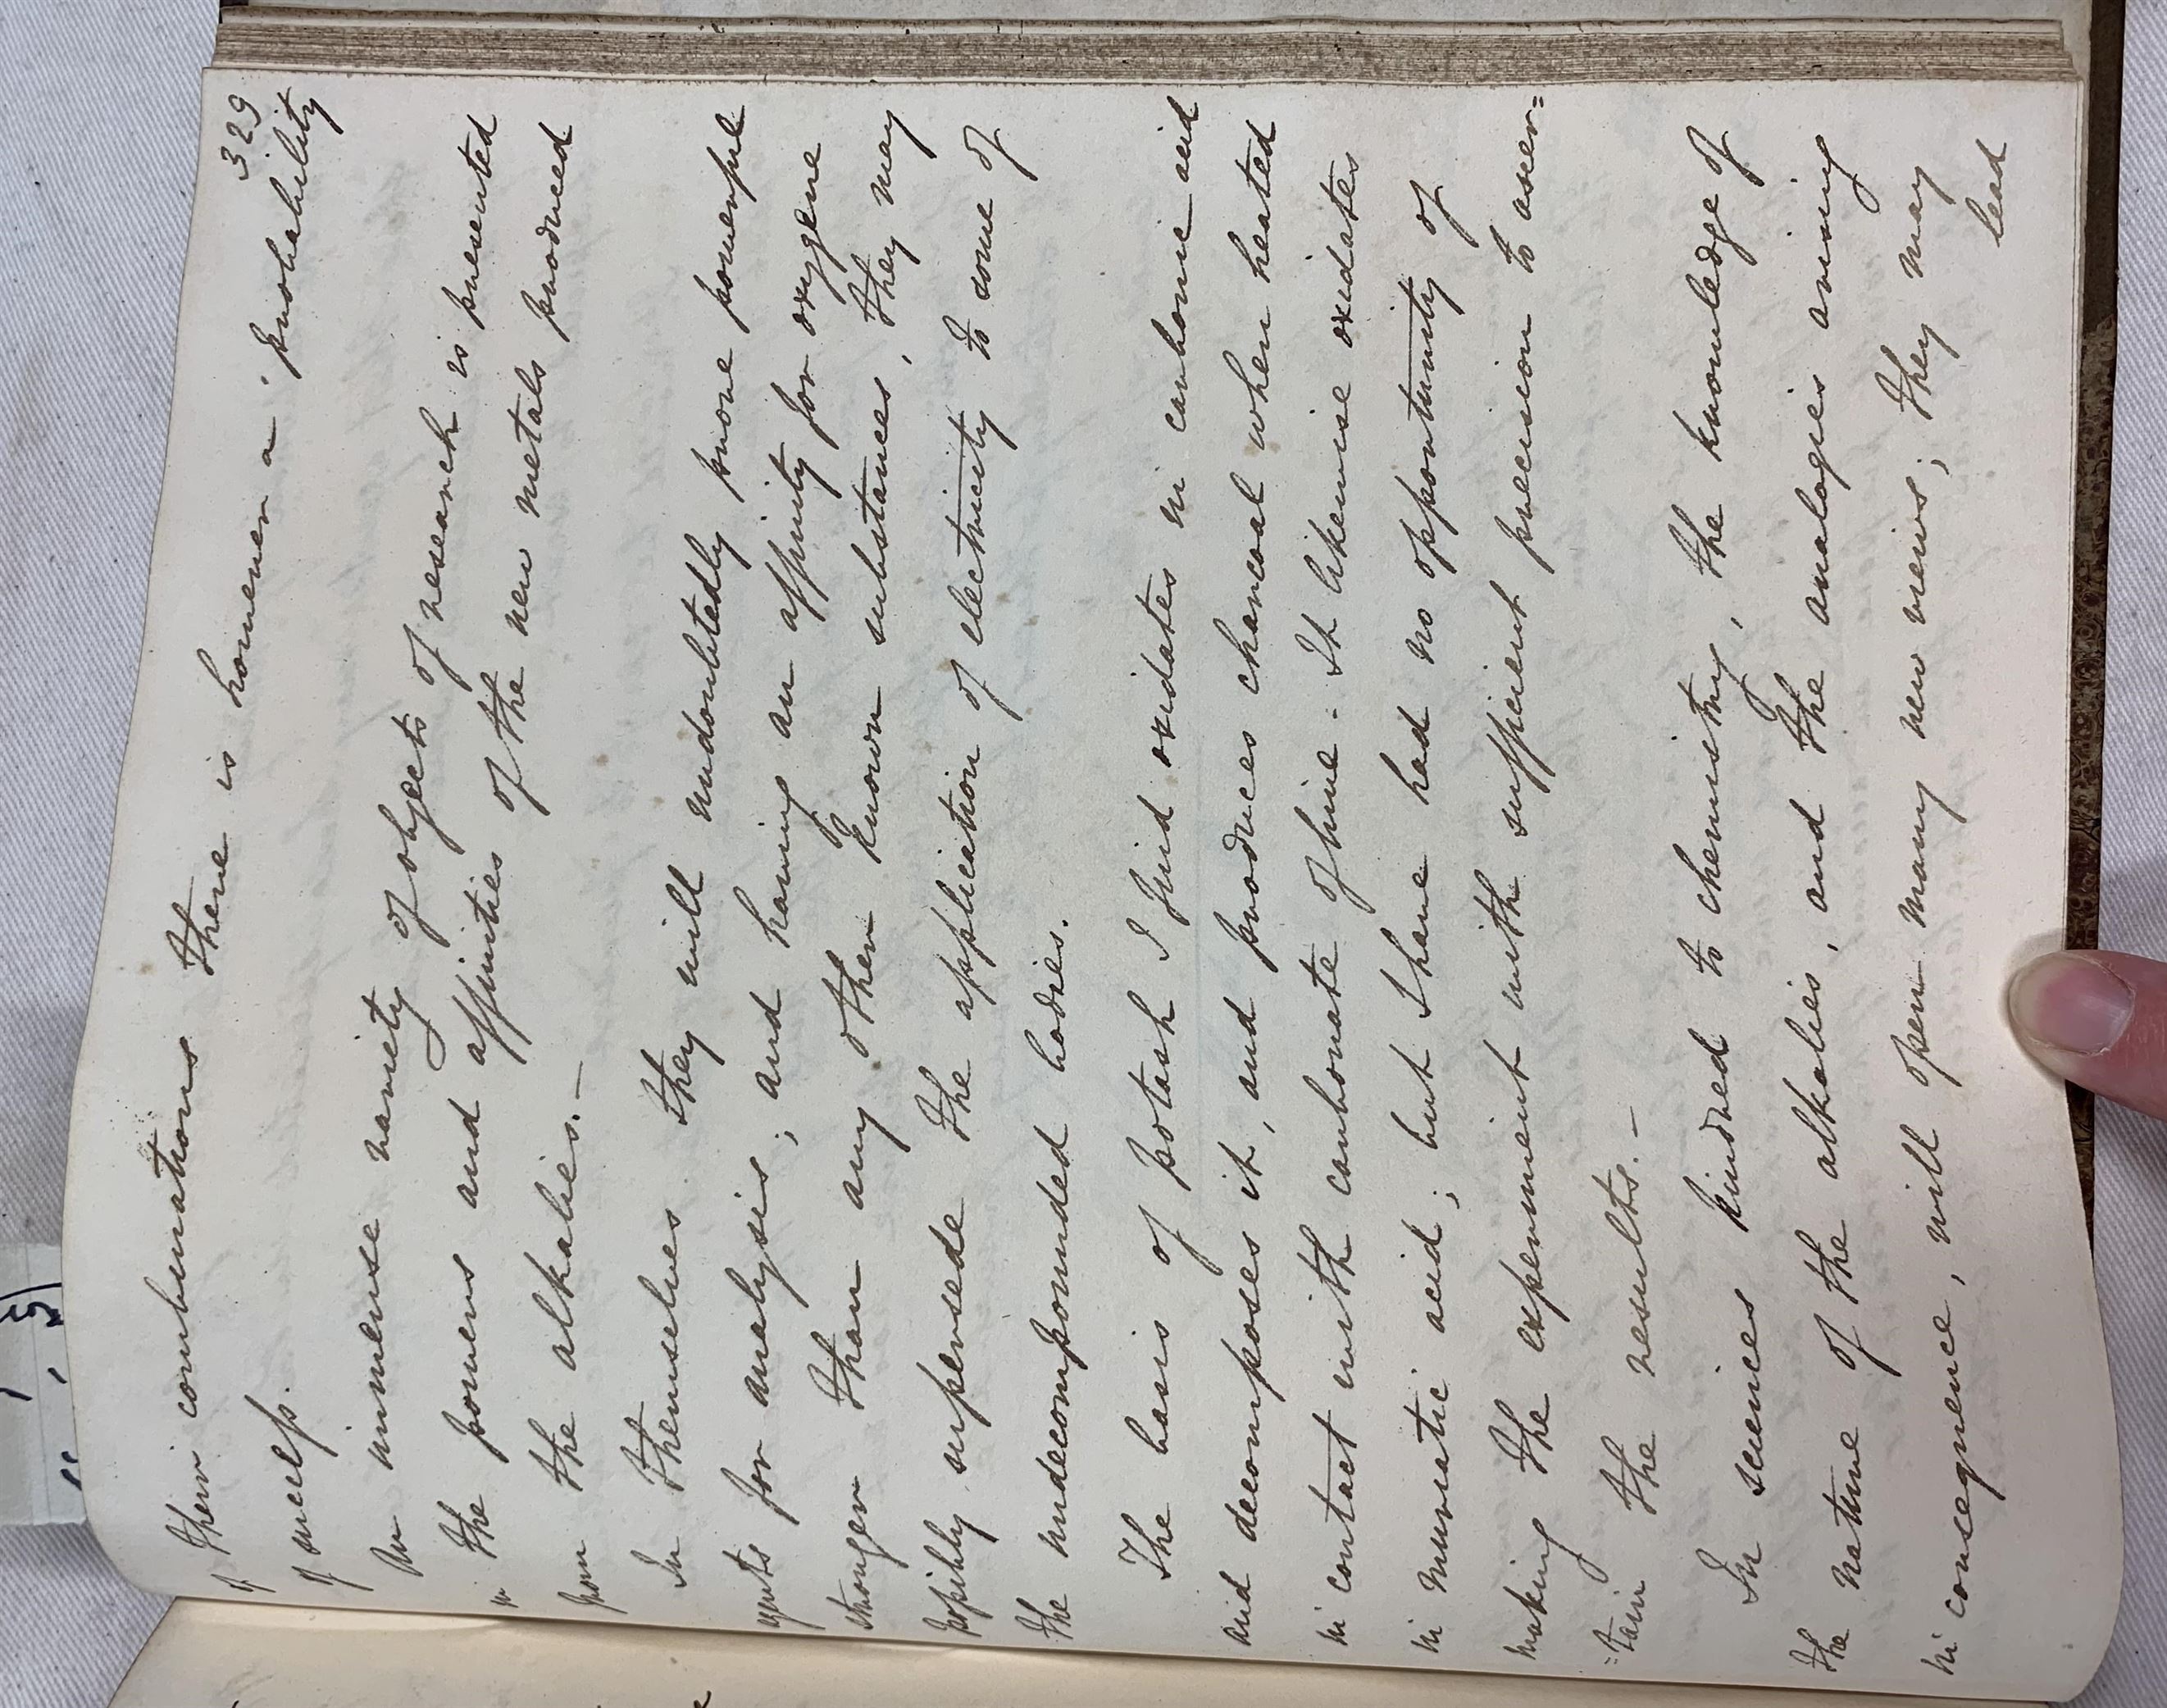 329
of their combinations there is however a probability
of succeſs.
An immense variety of objects of research is presented
in the powers and affinities of the new metals produced
from the alkalies. —
In themselves they will undoubtedly prove powerful
agents for analysis; and having an affinity for oxygene
stronger than any other known substances, they may
poſsibly supersede the application of electricity to some of
the undecompounded bodies.
The basis of potash I find oxidates in carbonic acid
and decomposes it, and produces charcoal when heated
in contact with carbonate of lime. It likewise oxidates
in muriatic acid; but I have had no opportunity of
making the experiment with sufficient precision to ascer=
=tain the results. —
In sciences kindred to chemistry, the knowledge of
the nature of the alkalies, and the analogies arising
in consequence, will open many new views; they may
lead